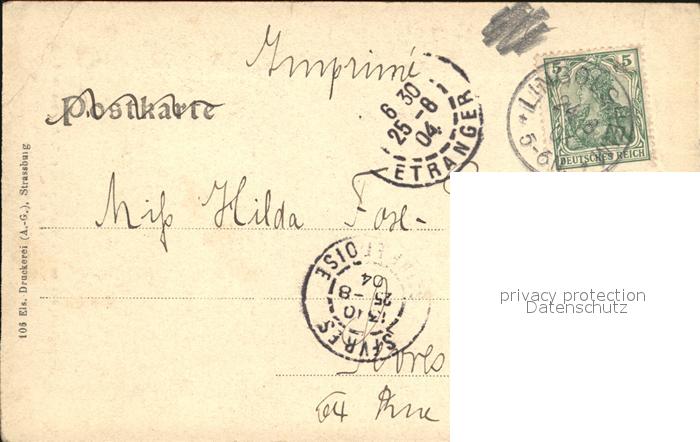 Imprimé
Postkarte
6 30
25-8
04
ETRANGER
5 5
DEUTSCHES REICH
5-6
Miss Hilda
SÈVRES
OISE
13 10
25-8
04
64 Rue
106 Els. Druckerei (A.-G.), Strassburg
privacy protection
Datenschutz